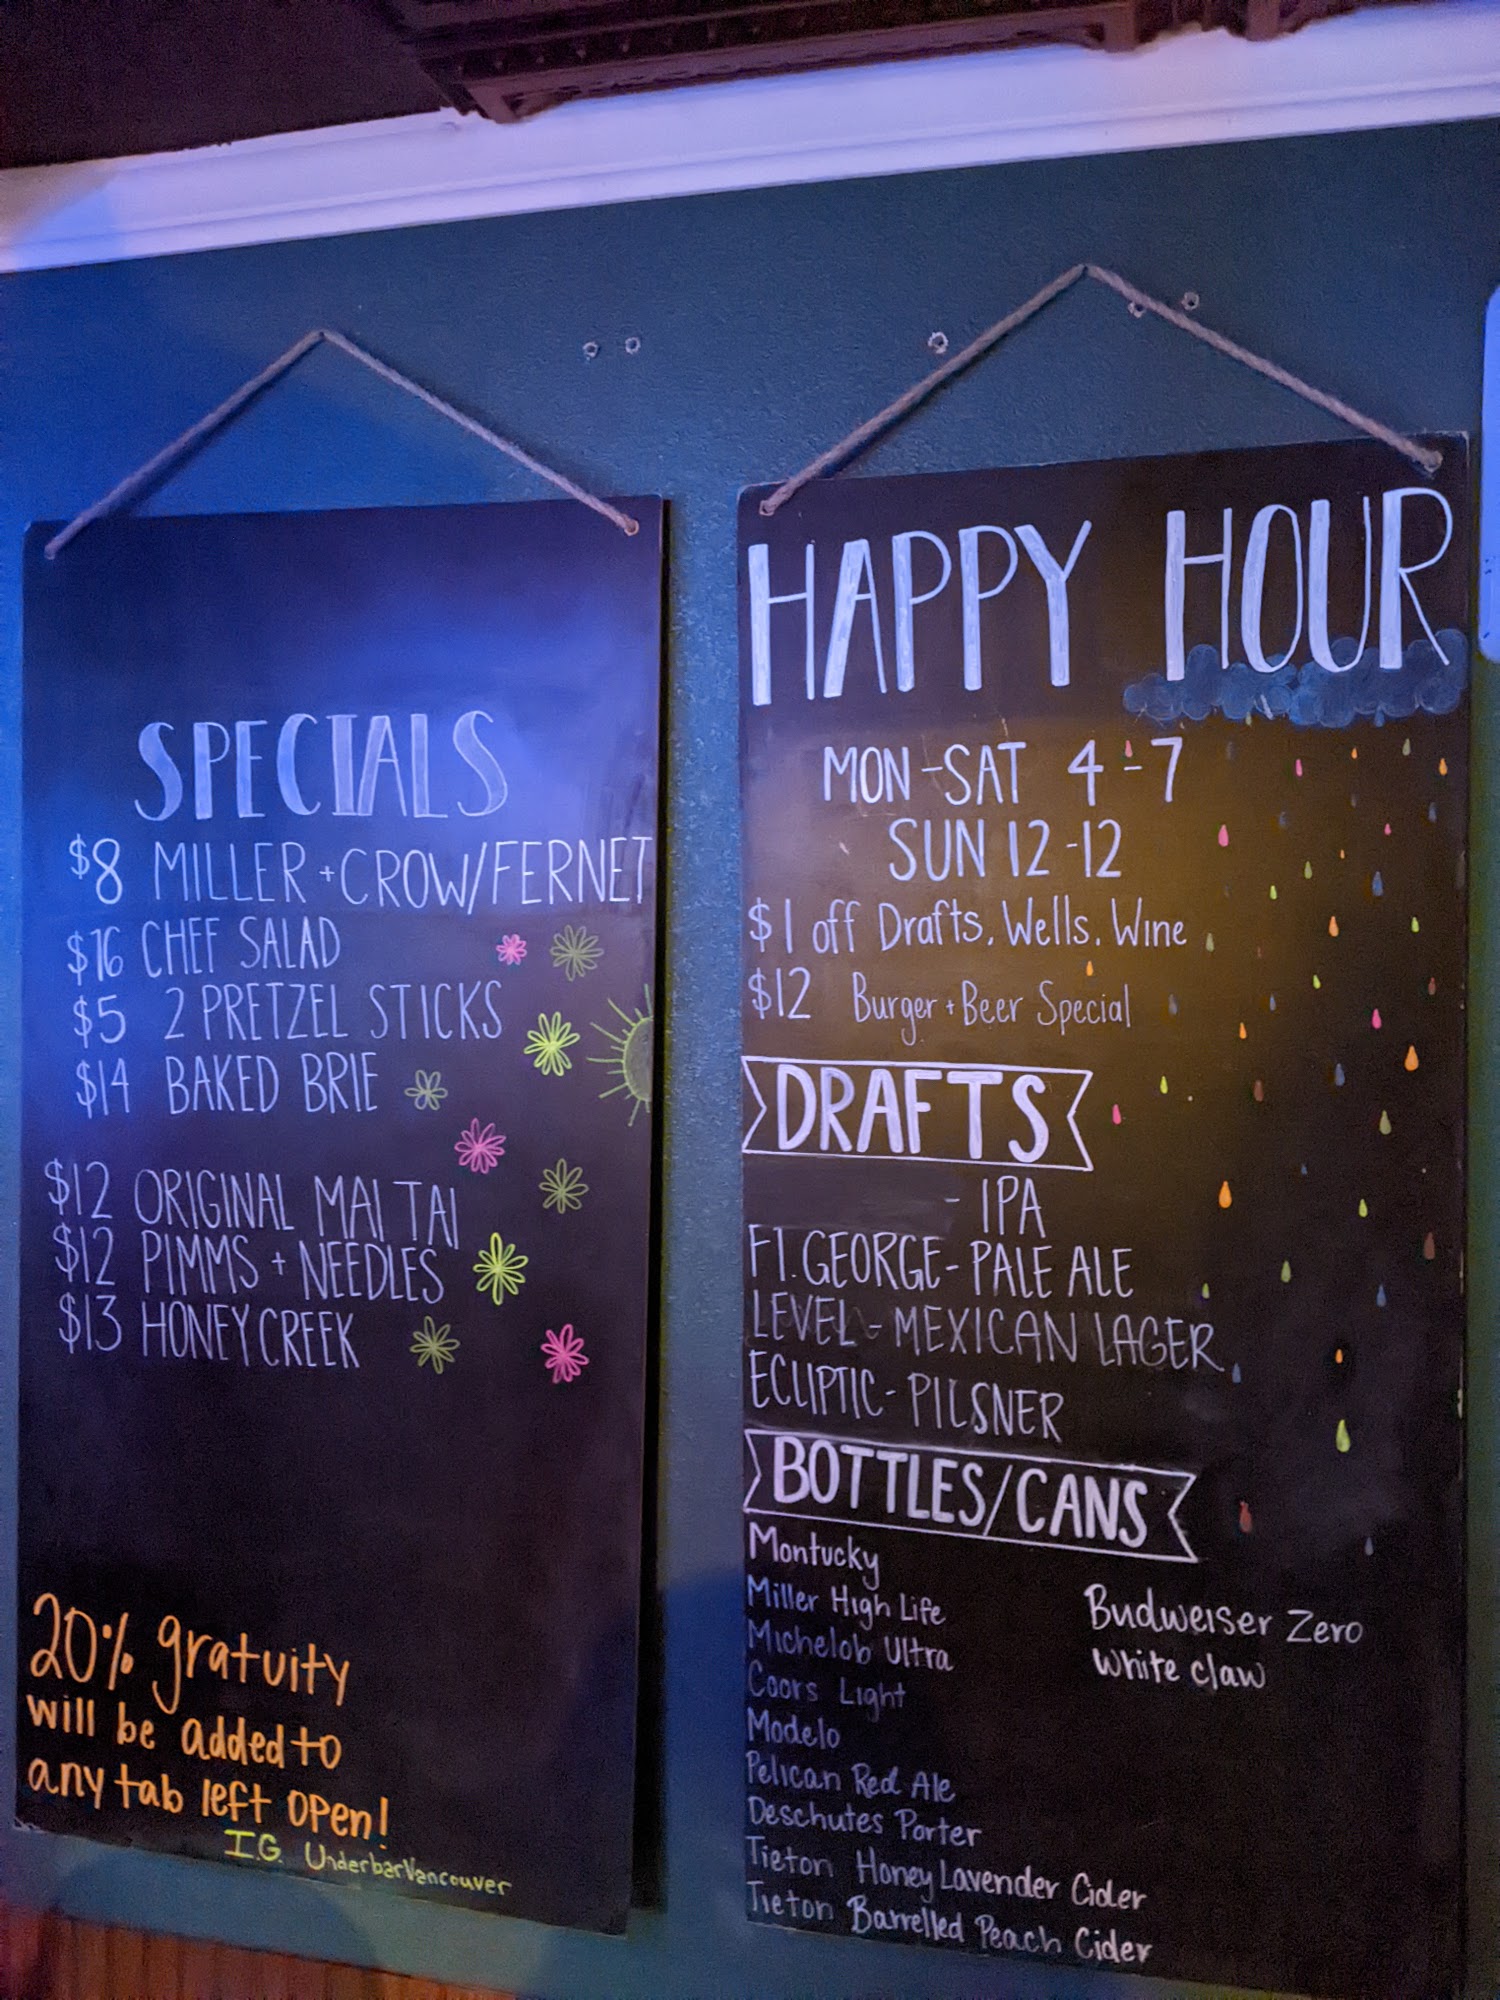 SPECIALS
$8 MILLER + CROW/FERNET
$16 CHEF SALAD
$5 2 PRETZEL STICKS
$14 BAKED BRIE
$12 ORIGINAL MAI TAI
$12 PIMMS + NEEDLES
$13 HONEY CREEK
20% gratuity
will be added to
any tab left open!
I.G. UnderbarVancouver
HAPPY HOUR
MON-SAT 4-7
SUN 12-12
$1 off Drafts, Wells, Wine
$12 Burger + Beer Special
DRAFTS
- IPA
FT. GEORGE - PALE ALE
LEVEL - MEXICAN LAGER
ECLIPTIC - PILSNER
BOTTLES/CANS
Montucky
Miller High Life
Michelob Ultra
Coors Light
Modelo
Pelican Red Ale
Deschutes Porter
Tieton Honey Lavender Cider
Tieton Barrelled Peach Cider
Budweiser Zero
White Claw